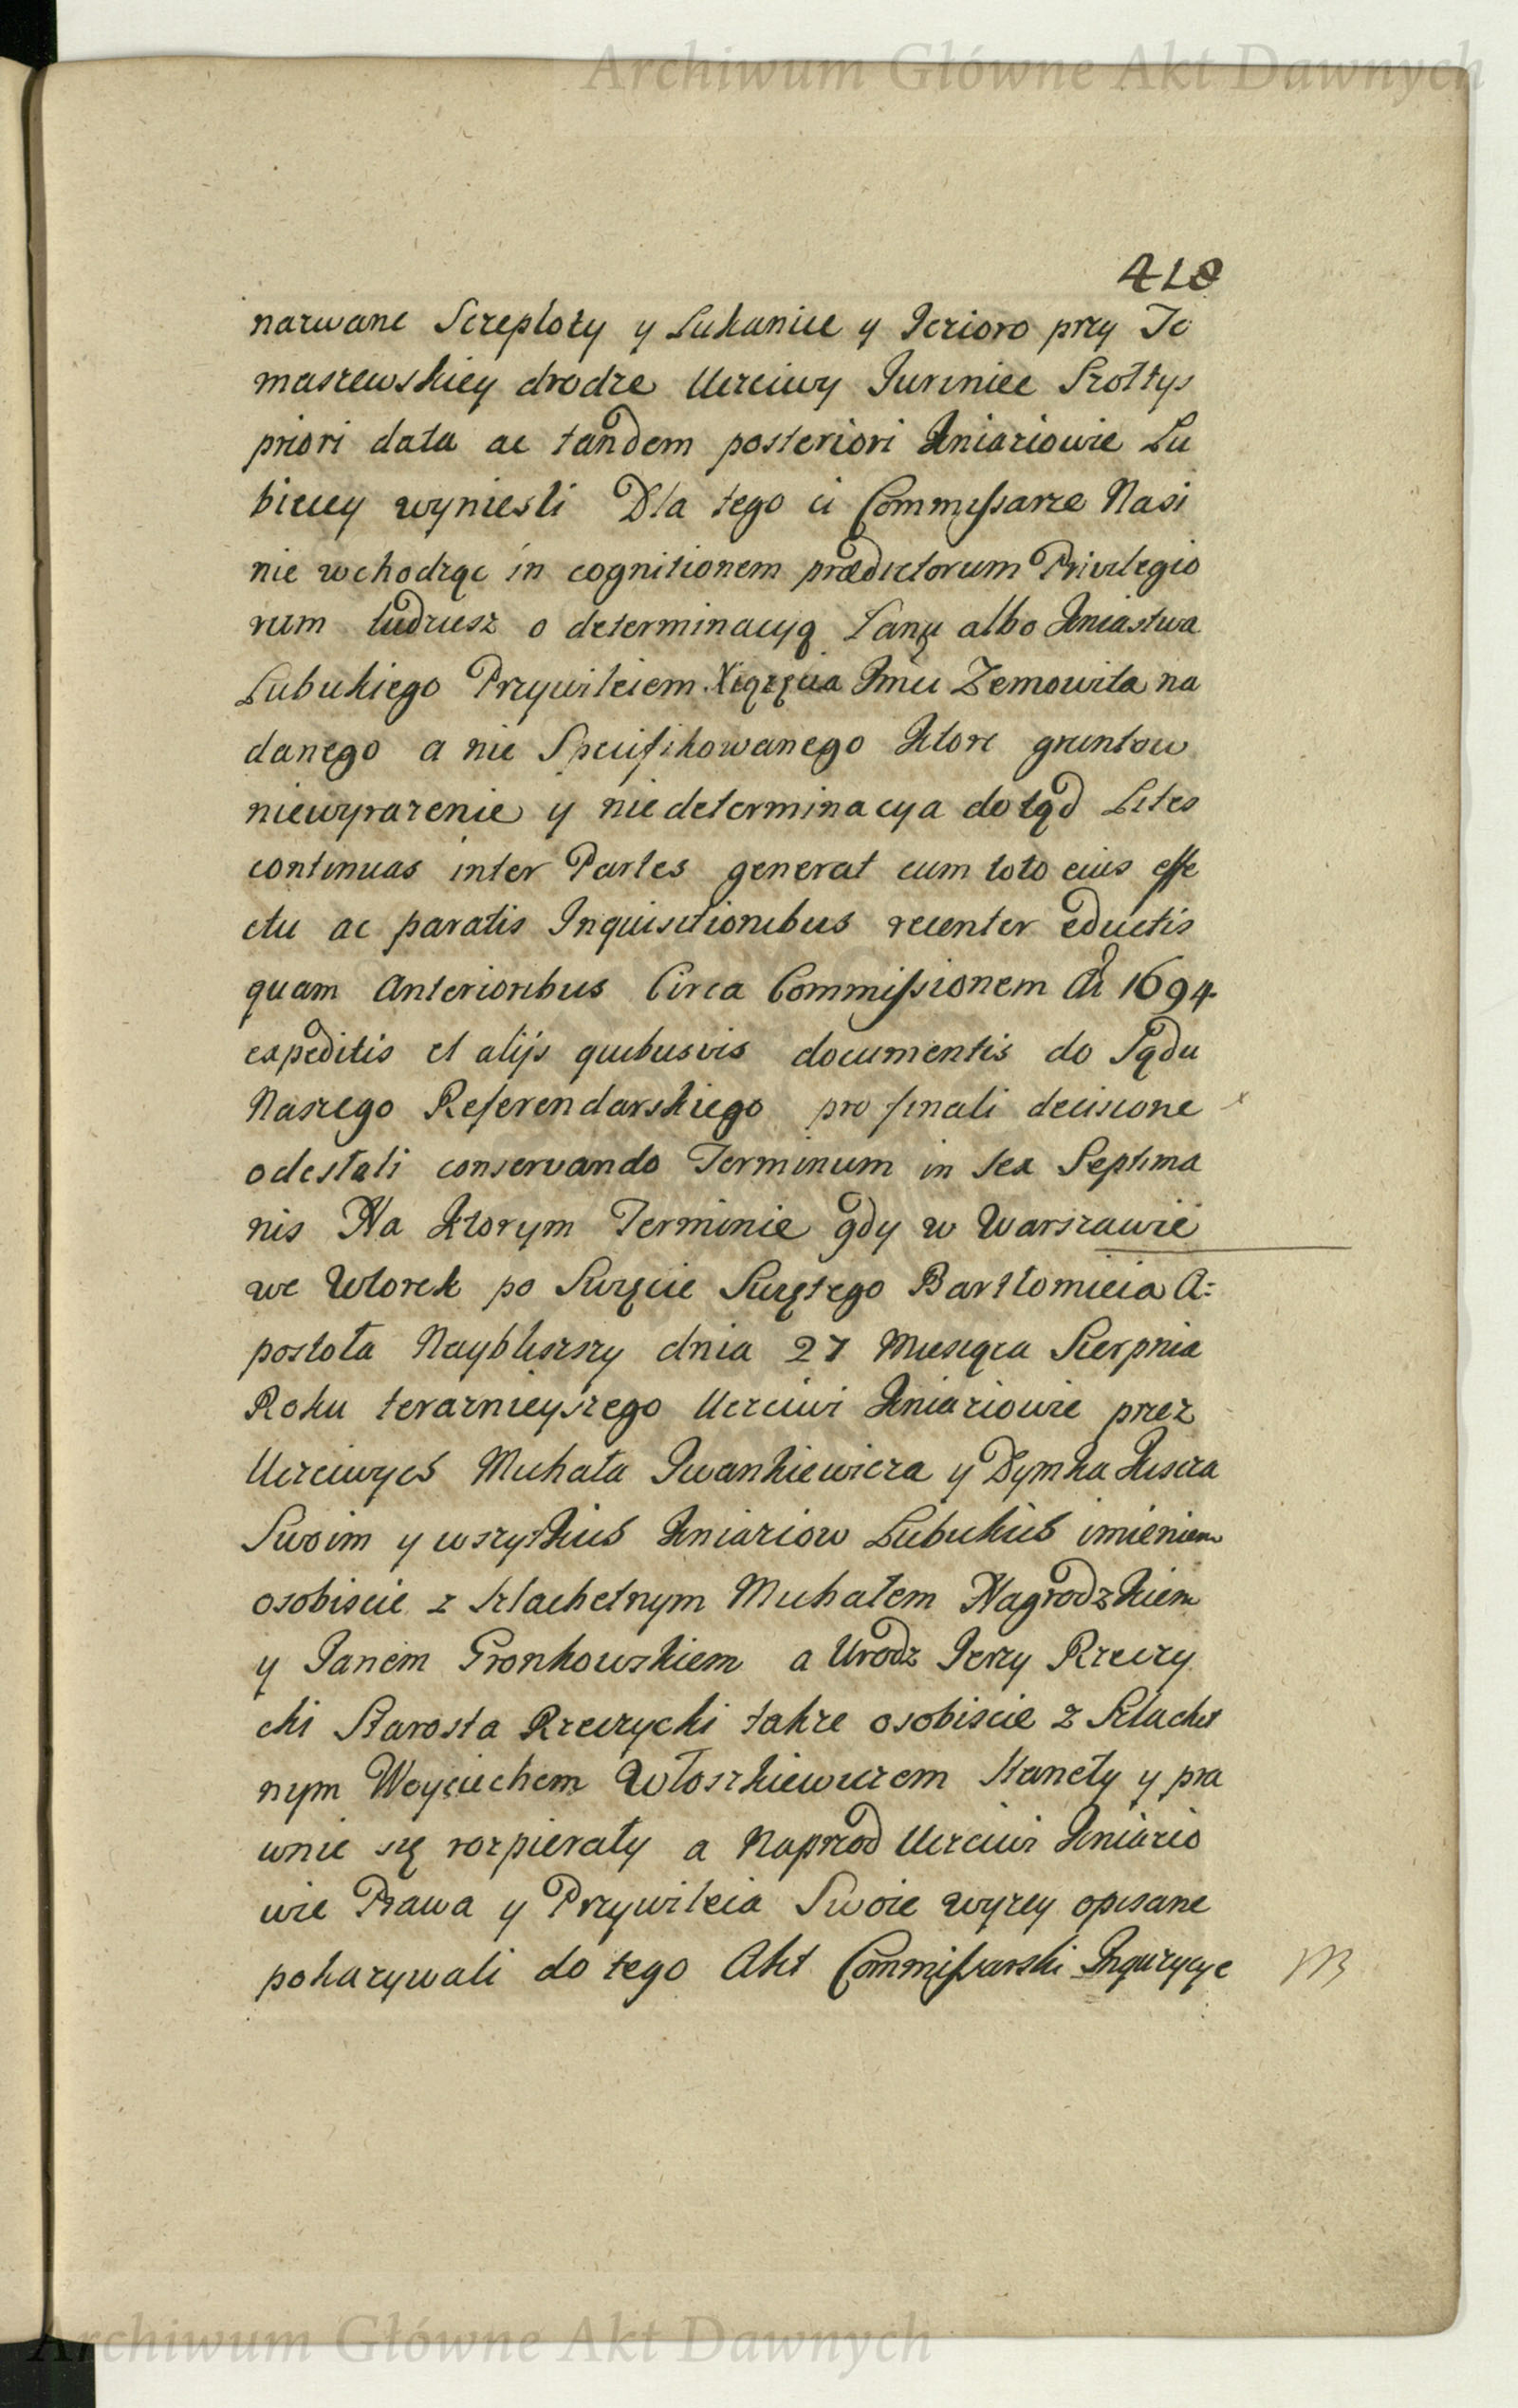 Archiwum Główne Akt Dawnych
418
nazwane Szczepłoty y Łukanice y Jezioro przy To
maszewskiey drodze Uczciwy Juriniec Szołtys
priori data ac tandem posteriori Kniaziowie Lu
biccy wyniesli Dla tego ci Commissarze Nasi
nie wchodząc in cognitionem prædictorum Privilegio
rum tudzież o determinacyą Łanu albo Kniastwa
Lubyckiego Przywileiem Xiążęcia Jmci Zemowita na
danego a nie Specifikowanego ktore gruntow
niewyrazenie y niedeterminacya dotąd Lites
continuas inter Partes generat cum toto eius effe
ctu ac paratis Inquisitionibus recenter eductis
quam Anterioribus Circa Commissionem Aō 1694
expeditis et alijs quibusvis documentis do Sądu
Naszego Referendarskiego pro finali decisione
odesłali conservando Terminum in sex Septima
nis Na ktorym Terminie gdy w Warszawie
we Wtorek po Swięcie Swiętego Bartłomieia A=
postoła Naybliższy dnia 27 Miesiąca Sierpnia
Roku terazniejszego Uczciwi Kniaziowie przez
Uczciwych Michała Iwankiewicza y Dymka Kuszza
Swoim y wszytkich Kniaziow Lubyckich imieniem
osobiscie z Szlachetnym Michałem Nagrodzkiem
y Janem Gronkowskiem a Urodz Jerzy Rzeczy
cki Starosta Rzeczycki takze osobiscie z Szlachet
nym Woyciechem Włoszkiewiczem stanęły y pra
wnie się rozpierały a Naprzod Uczciwi Kniazio
wie Prawa y Przywileia Swoie wyzey opisane
pokazywali do tego Akt Commissarski Inquizycye
Archiwum Główne Akt Dawnych